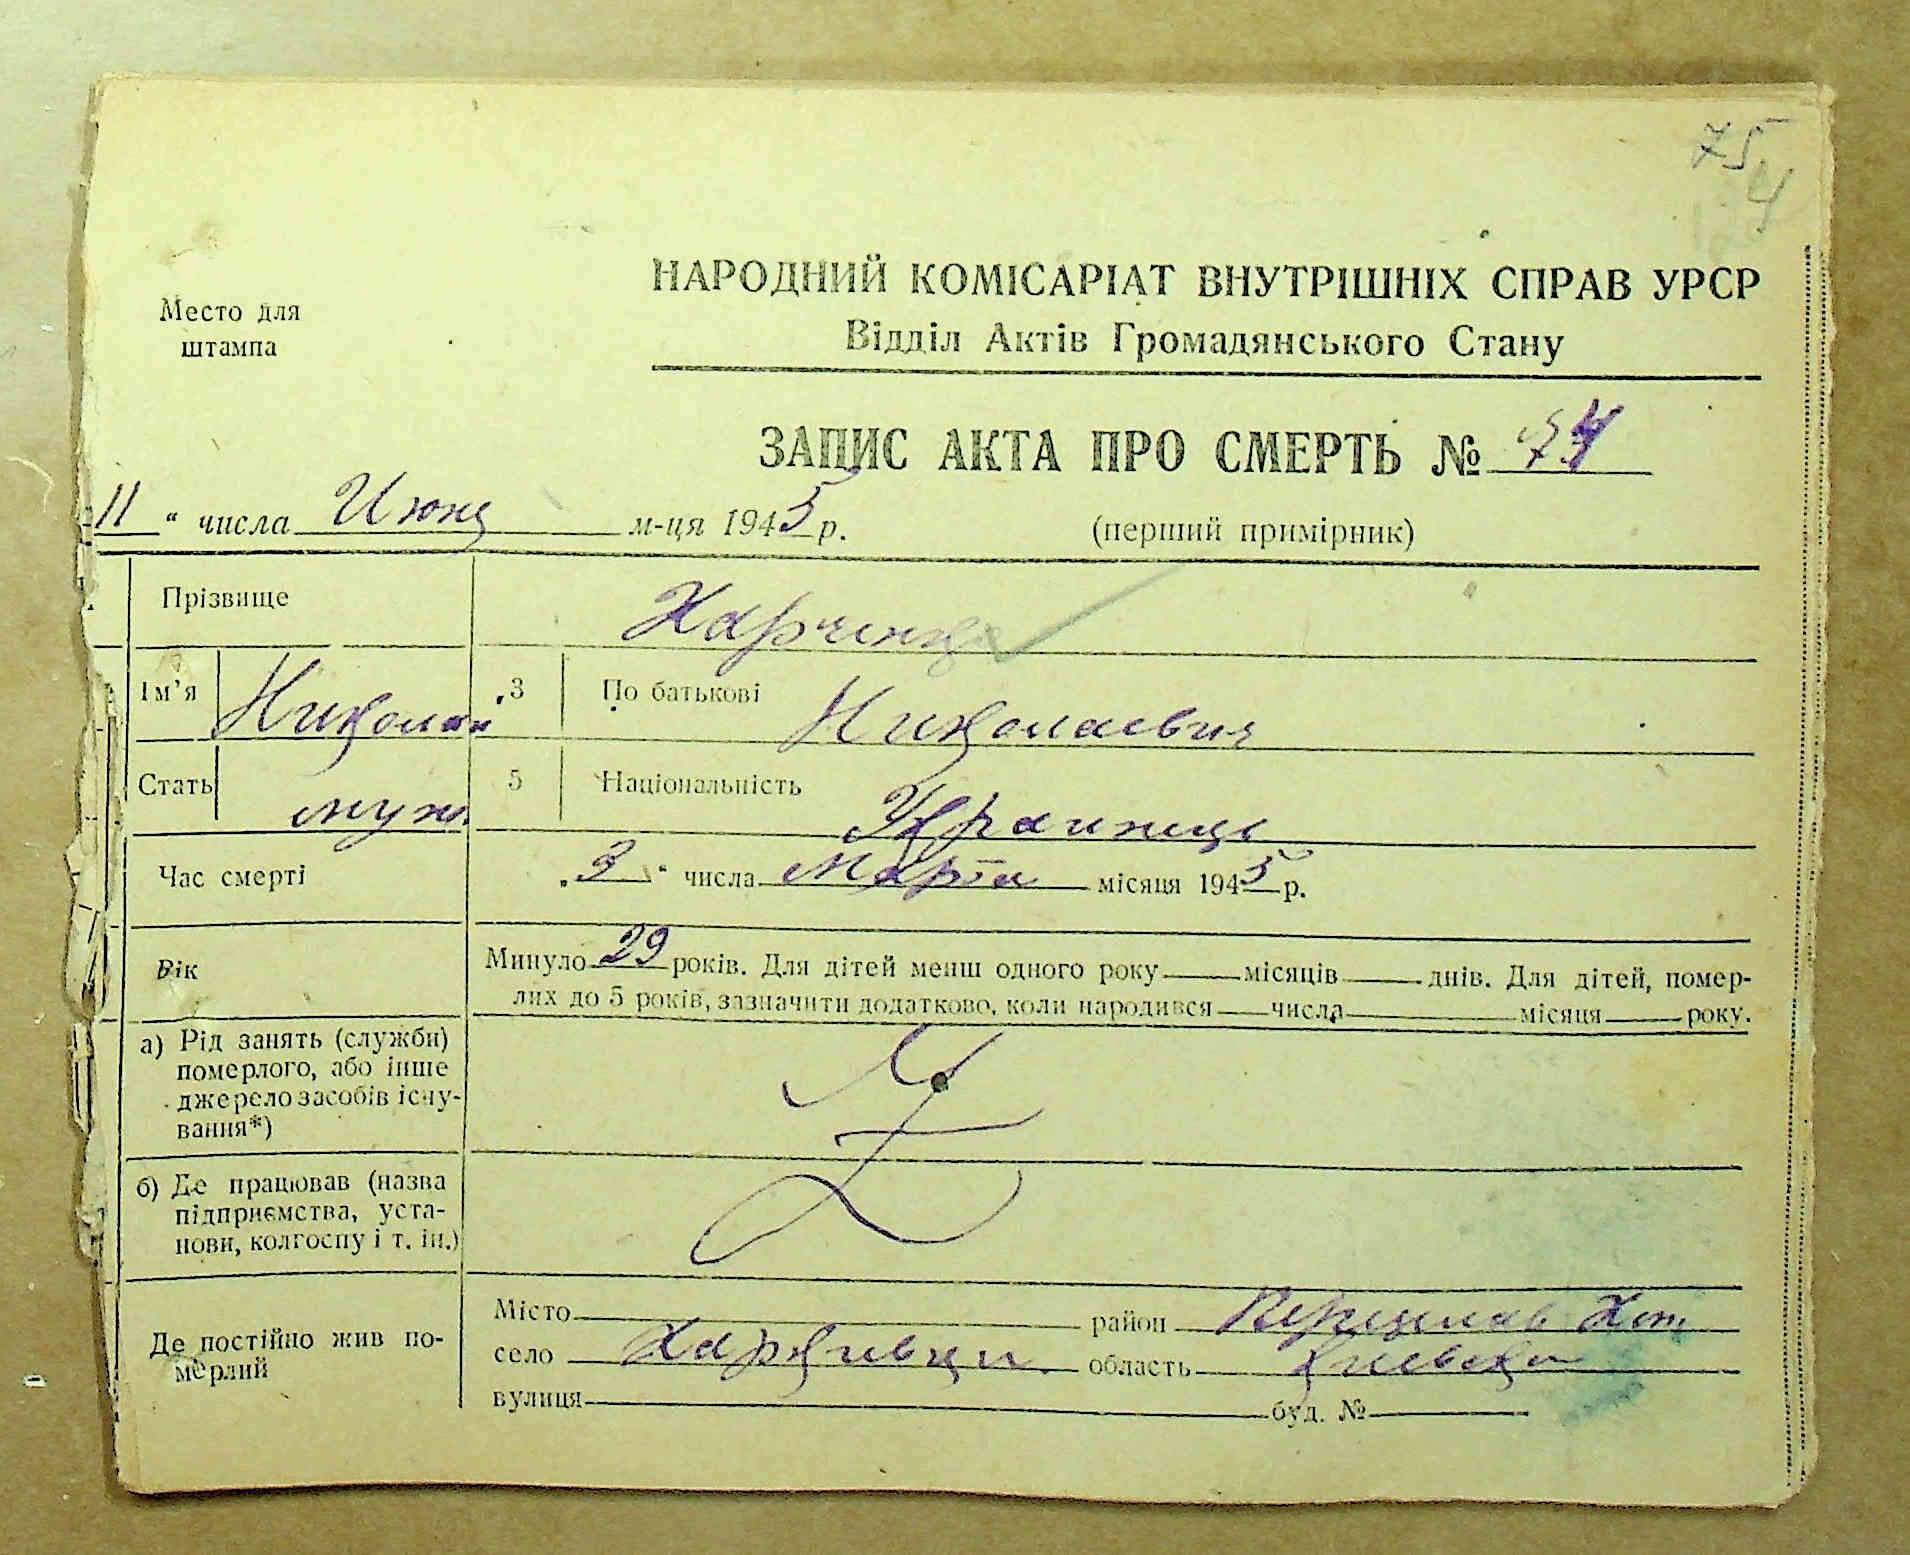 75
4
Место для
штампа
НАРОДНИЙ КОМІСАРІАТ ВНУТРІШНІХ СПРАВ УРСР
Відділ Актів Громадянського Стану
ЗАПИС АКТА ПРО СМЕРТЬ № 74
11 " числа Июня м-ця 1945 р. (перший примірник)
Прізвище Харченко
Ім'я Николай 3 По батькові Николаевич
Стать муж. 5 Національність Украинець
Час смерті „3" числа Марта місяця 1945 р.
Вік Минуло 29 років. Для дітей менш одного року місяців днів. Для дітей, помер-
лих до 5 років, зазначити додатково, коли народився числа місяця року.
а) Рід занять (служби)
померлого, або інше
джерело засобів існу-
вання*)
б) Де працював (назва
підприємства, уста-
нови, колгоспу і т. ін.)
Де постійно жив по-
мерлий
Місто район Переяслав Хм.
село Харковци область Киевская
вулиця буд. №